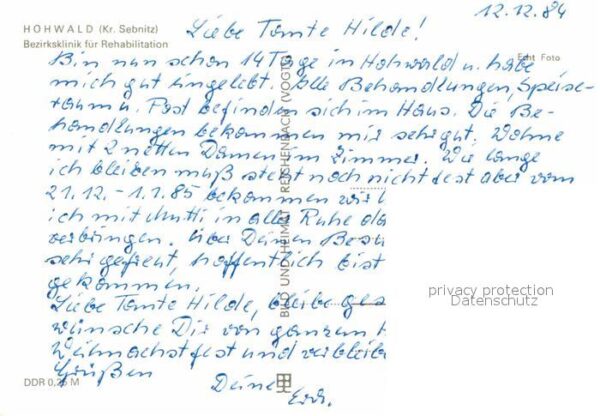 12.12.84
HOHWALD (Kr. Sebnitz)
Bezirksklinik für Rehabilitation
Echt Foto
Liebe Tante Hilde!
Bin nun schon 14 Tage in Hohwald u. habe
mich gut eingelebt. Alle Behandlungen, Speise-
raum u. Post befinden sich im Haus. Die Be-
handlungen bekommen mir sehr gut. Wohne
mit 2 netten Damen im Zimmer. Wie lange
ich bleiben muß steht noch nicht fest aber vom
21.12. - 1.1.85 bekommen wir
ich mit Mutti in aller Ruhe
verbringen. Über Deinen
sehr gefreut, hoffentlich bist
gekommen.
Liebe Tante Hilde, bleibe
wünsche Dir von ganzem
Weihnachtsfest und
Grüßen
Deine
BILD UND HEIMAT REICHENBACH (VOGTL)
privacy protection
Datenschutz
DDR 0,25 M